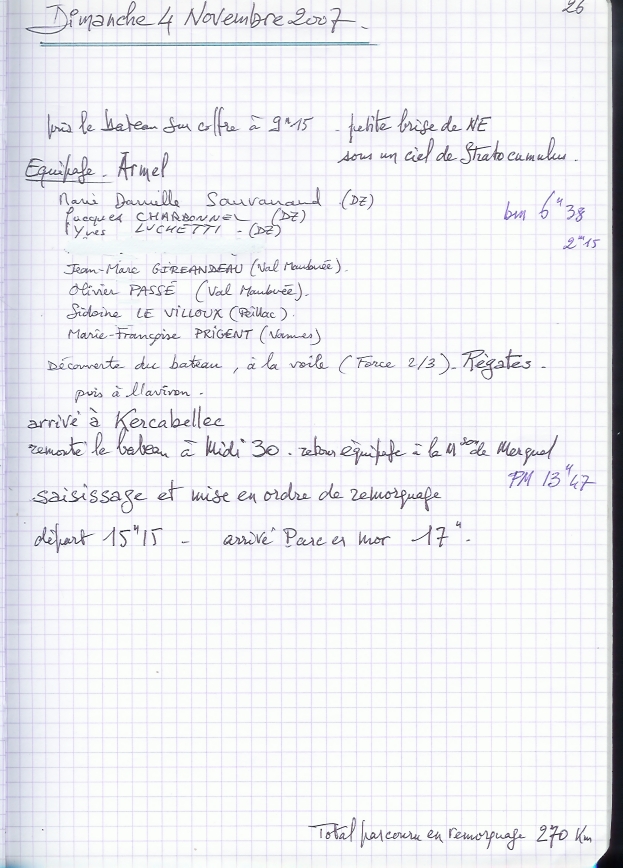 26
Dimanche 4 Novembre 2007.
pris le bateau sur coffre à 9h15 - petite brise de NE
sous un ciel de Stratocumulus.
Equipage. Armel
Marie Danielle Sauvanaud (DZ)
Jacques CHARBONNEL (DZ)
Yves LUCHETTI - (DZ)
bm 6h38
2m15
Jean-Marc GIREANDEAU (Val Maubuée).
Olivier PASSÉ (Val Maubuée).
Sidoine LE VILLOUX (Peillac).
Marie-Françoise PRIGENT (Vannes)
Découverte du bateau, à la voile (Force 2/3) - Régates.
puis à l'aviron.
arrivé à Kercabellec
remonté le bateau à Midi 30. retour équipage à la Mson de Merquel
PM 13h47
saisissage et mise en ordre de remorquage
départ 15h15 - arrivé Parc er mor 17h.
Total parcouru en remorquage 270 Km